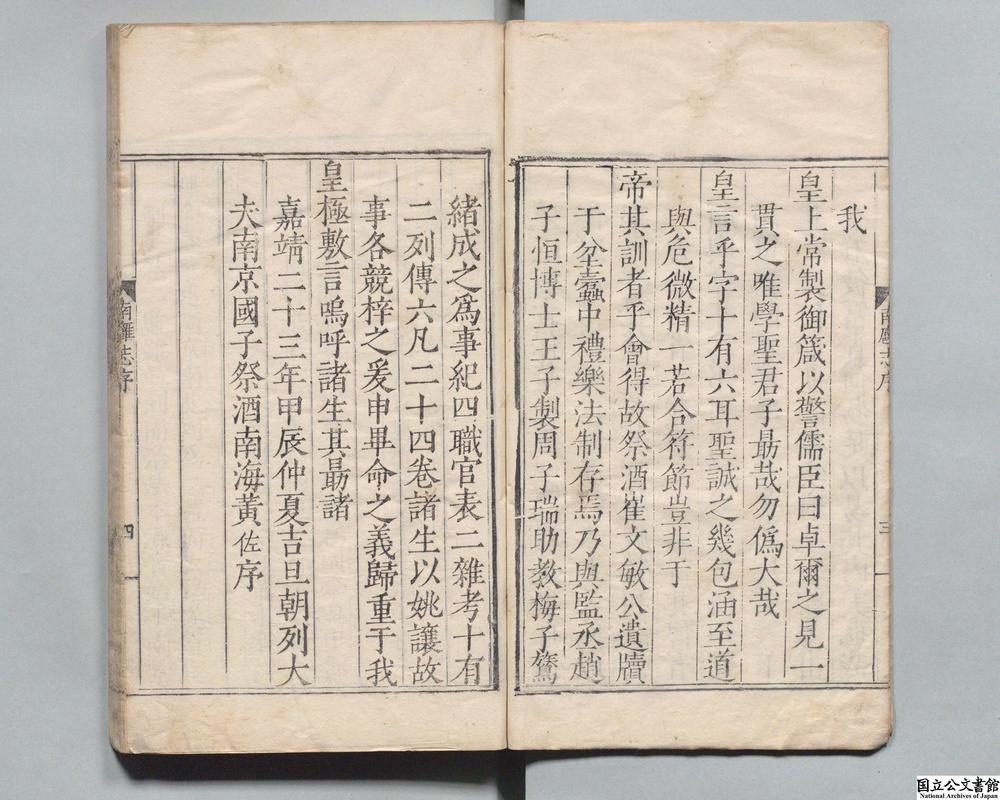 我
皇上常製御箴以警儒臣曰卓爾之見一
貫之唯學聖君子勗哉勿僞大哉
皇言乎字十有六耳聖誠之幾包涵至道
與危微精一若合符節豈非于
帝其訓者乎會得故祭酒崔文敏公遺牘
于坌蠹中禮樂法制存焉乃與監丞趙
子恒博士王子製周子瑞助教梅子鶩
南雍志序
三
緒成之爲事紀四職官表二雜考十有
二列傳六凡二十四卷諸生以姚讓故
事各競梓之爰申畢命之義歸重于我
皇極敷言嗚呼諸生其勗諸
嘉靖二十三年甲辰仲夏吉旦朝列大
夫南京國子祭酒南海黃佐序
南雍志序
四
国立公文書館
National Archives of Japan